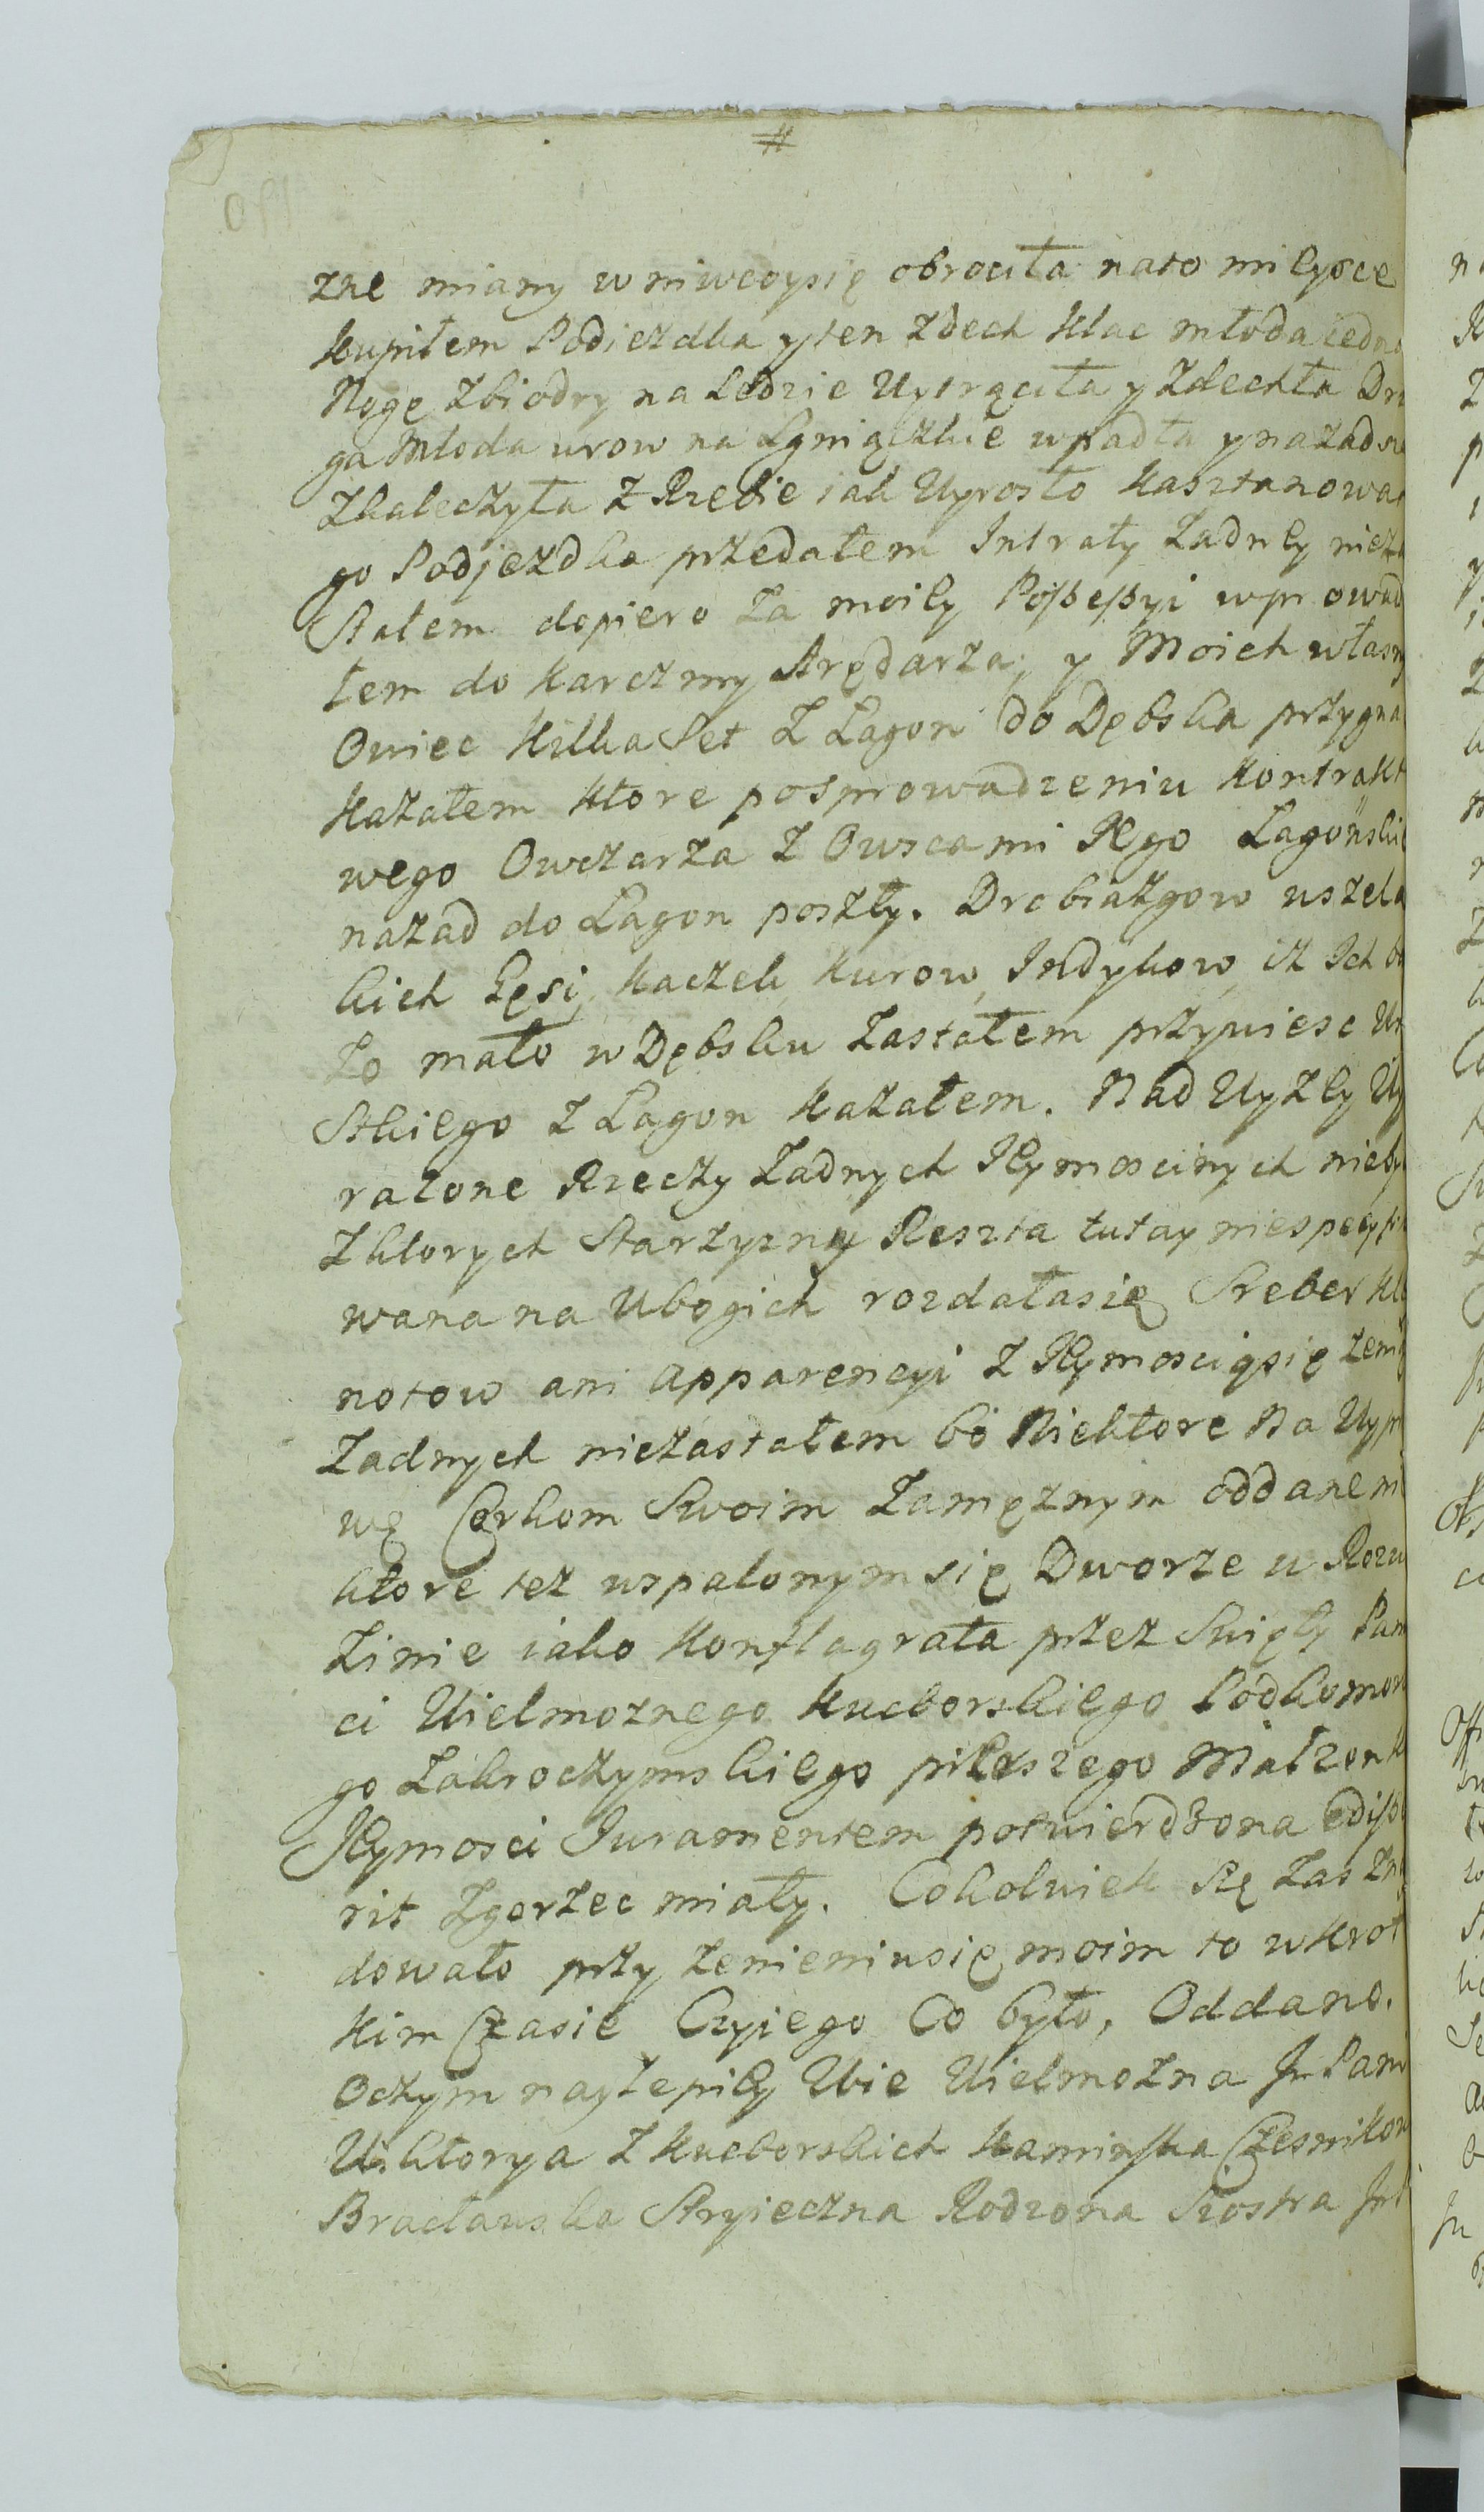 #
zne miany wniwecoysię obrociła nato mieysce
kupiłem Podiezdka yten zdech klac młoda iedn
Nogę zbiodry na Ledzie Uytrąciła y zdechła Dr
ga Młoda wrow na Lgniączkie wpadła ynazad
zkaleczyła z Rzebie iak Uyrosło kasztanowa
go Podjezdka przedałem Intraty Zadney nieza
Stałem dopiero za moiey Possessyi wprowad
łem do karczmy Arędarza, y Moich własn
Owiec kilka Set z Lagon do Dębska przygna
kazałem ktore posprowadzeniu kontrakt
wego Owczarza z Owcami Jego Lagonski
nazad do Lagon poszły. Drobiazgow wszela
kich Gęsi, kaczek, kurow, Indykow, iż Ich b
Zo mało w Dębsku Zastałem przywiesc Ws
Stkiego z Lagon kazałem. Nad Uyzey Uy
razone Rzeczy Zadnych Jeymoscinych nieby
Zktorych Starzyzny Reszta tutay niespecyfik
wana na Ubogich rozdałasię Sreber kl
notow ani apparencyi z Jeymosciąsię zeni
Zadnych niezastałem bo Niektore Na Uypr
wę Corkom Swoim Zamęznym oddane ni
ktore tez wspalonymsię Dworze w
Zinie iako konflagrata przez Swięty Pam
ci Wielmoznego kucborskiego Podkomor
go Zakroczymskiego pierszego Małzonk
Jeymosci Iuramentem potwierdzona edisse
rit Zgorzec miały. Cokolwiek Się zas zn
dowało przy zenieniusię moim to wkrot
kim Czasie Czyiego Co było, Oddano.
Oczym naylepiey Wie Wielmozna Jm Pani
Wiktorya z kucborskich kaminska Czesnikow
Bracławska Stryieczna Rodzona Siostra Jm